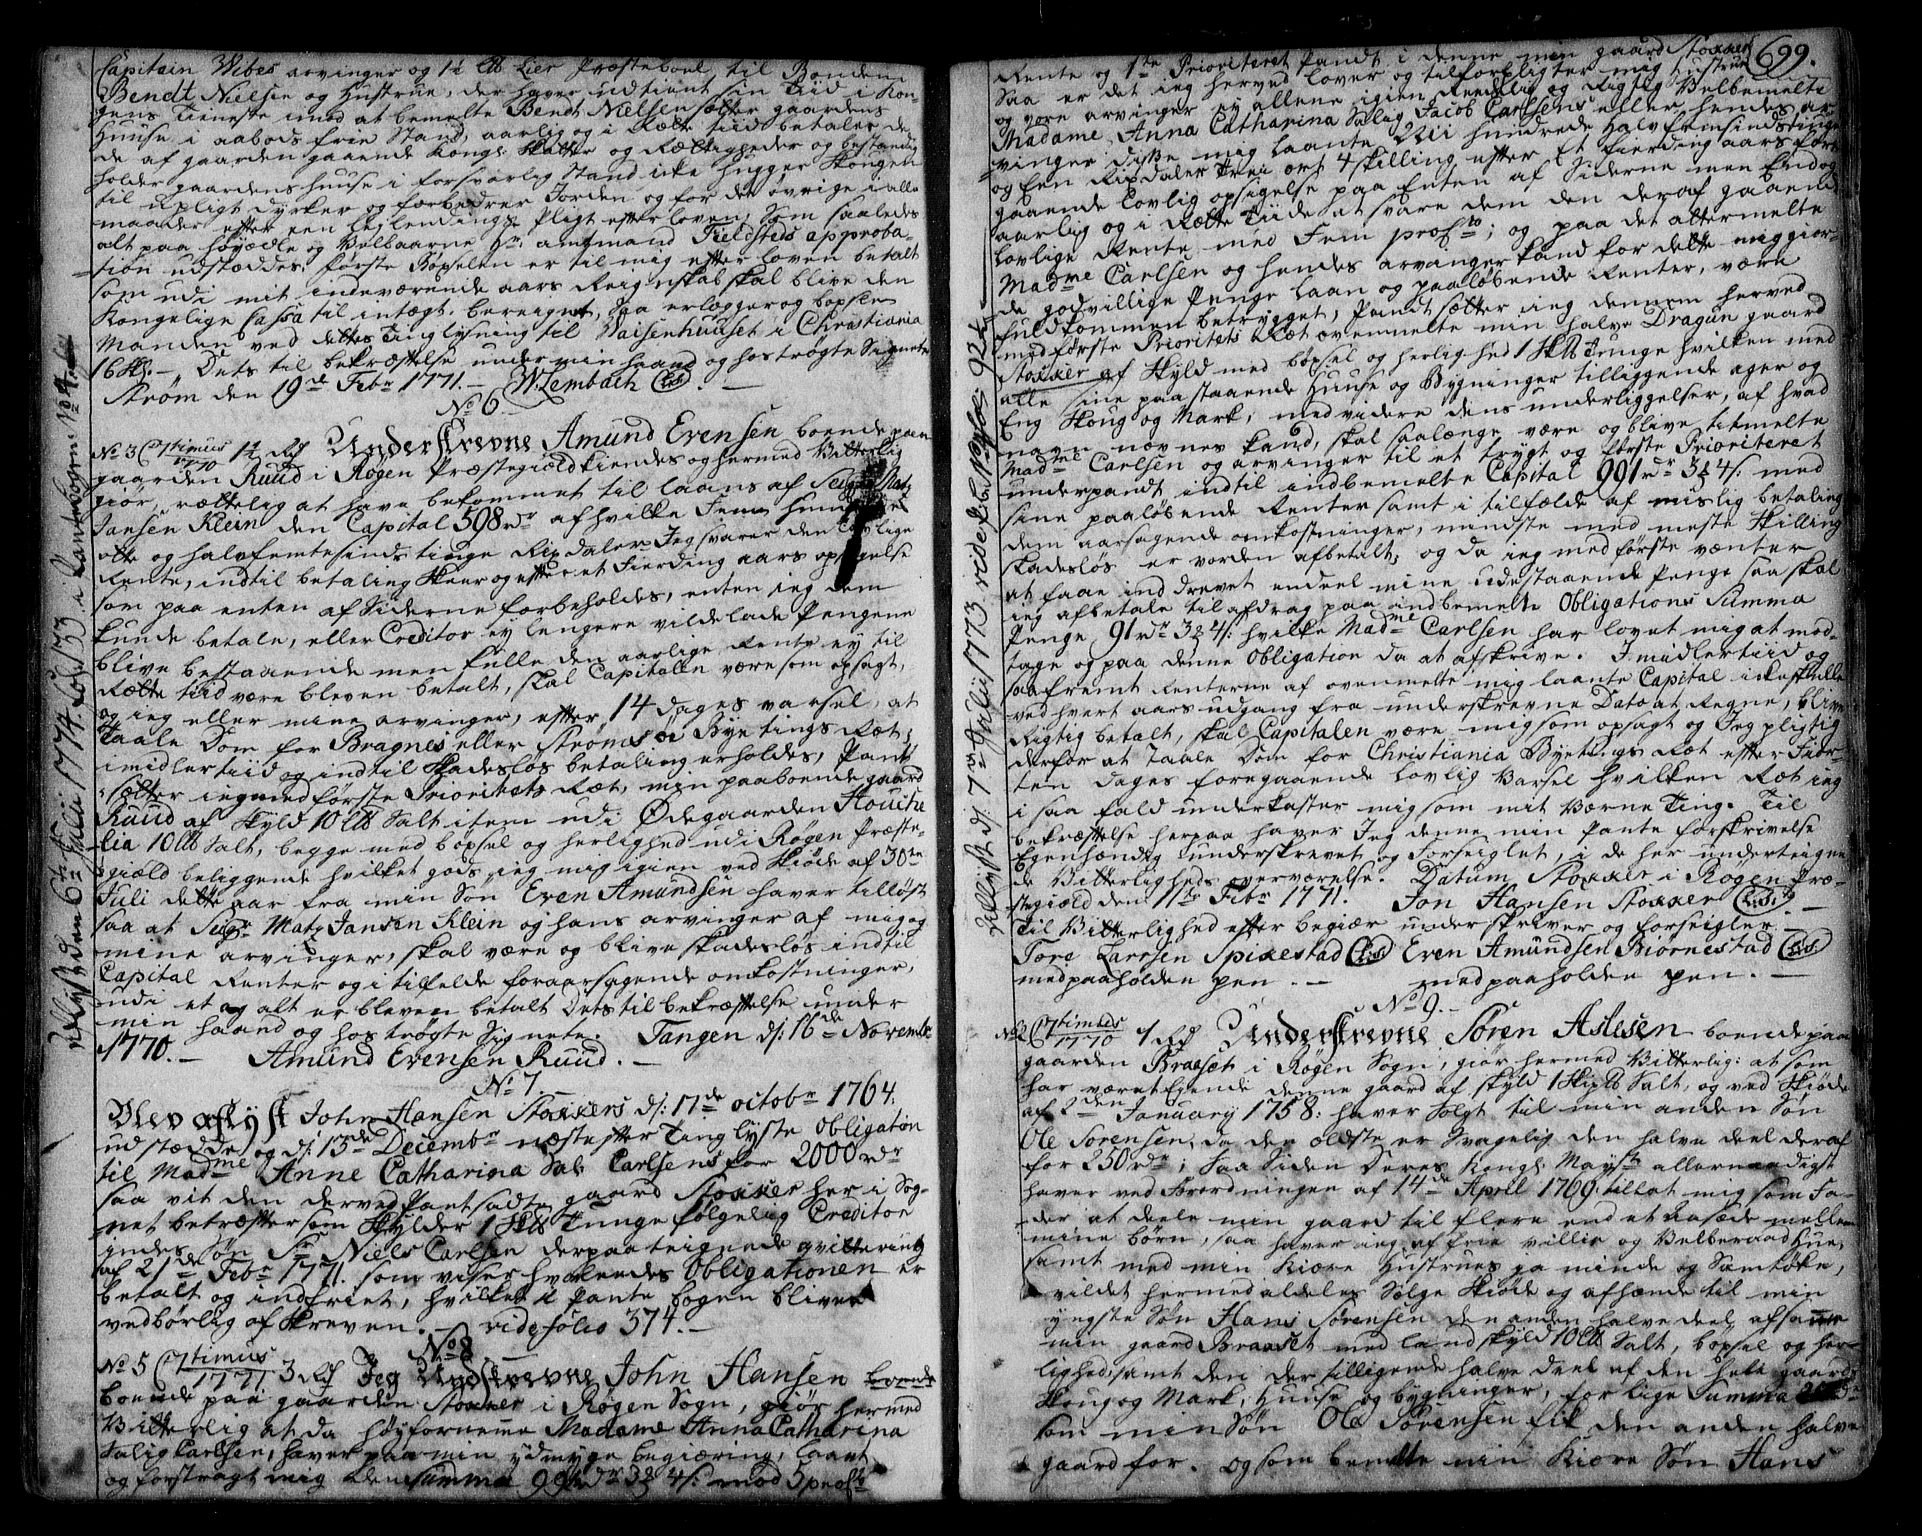 Capitain Vibes arvinger og 1½ lb Lier Præsteboel, til Bonden
Bendt Nielsen og Hustrue, der haver udtient sin Tiid i Kon-
gens Tieneste imod at bemelte Bendt Nielsen sætter gaardens
Huuse i aabods frie Stand, aarlig og i Rætte tiid betaler de
de af gaarden gaaende Kongl: Skatter og Rættigheder og bestandig
holder gaardens huuse i forsvarlig Stand icke hugger Skougen
til upligt, dyrker og forbedrer Jorden og for det øvrige i alle
maader efter een Leylændings Pligt efter loven, Som saaledes
alt paa høyædle og Velbaarne Hr: amtmand Fieldsteds approba-
tion udstæddes, første Bøxelen er til mig efter loven betalt
som udi mit indeværende aars Reignskab skal blive den
Kongelige Cassa til intægt bereignet, Saa erlægger og bøxsel
Manden ved dettes Tinglysning til Vaisenhuuset i Christiania
16 s. – Dets til bekræftelse under min haand og hostrøgte Signete
Strøm den 19de Febr 1771. – W. Lembach (L.S.) –
No 6
No 3 Optimus 1770 ½ Rd Underskrevne Amund Evensen boende paa
gaarden Ruud i Røgen Præstegiæld kiendes og hermed Vitterlig
giør, rættelig at have bekommet til laans af Seigr Matz
Jansen Klein den Capital 598 rdr af hvilke Fem hundrede
otte og halvfemtesinds tiuge Rixdaler Jeg svarer den Lovlige
Rente, indtil betaling skeer og efter et Fierding aars opsigelse
som paa enten af Siderne forbeholdes, enten ieg dem
kunde betale, eller Creditor ey lengere vilde lade Pengene
blive bestaaende men skulle den aarlige Rente ey til
Rætte tiid være bleven betalt, skal Capitalen være som opsagt,
og ieg eller mine arvinger, efter 14 dages varsel, at
taale Dom for Bragnes eller Strømsøe Byetings Ræt;
imidlertiid og indtil skadesløs betaling erholdes, Pant
sætter ieg med første Prioritets Ræt, min paaboende gaard
Ruud af Skyld 10 lb Salt item udi Ødegaarden Houche
lia 10 lb Salt, begge med bøxsel og herlighed udi Røgen Præste-
giæld beliggende hvilket gods ieg mig igien ved Skiøde af 30te
Juli dette aar fra min Søn Even Amundsen haver tilløst
saa at Seigr Matz Jansen Klein og hans arvinger af mig og
mine arvinger, skal være og blive skadesløs indtil
Capital Renter og i tilfelde foraarsagende omkostninger,
udi et og alt er bleven betalt Dets til bekræftelse under
min haand og hostrøgte Signete. Tangen d: 16de Novembr
1770. – Amund Evensen Ruud. –
No 7. –
Blev aflyst John Hansen Stokkers d: 17de octobr 1764
udstædde og d: 13de Decembr næst efter Tinglyste obligation
til Madme Anne Catharina Sal: Carlsens for 2000 rdr
saa vit den derved Pantsadte gaard Stokker her i Sog-
net betræffer som skylder 1 Skl Tunge følgelig Creditor
indes Søn Sr Niels Carlsen derpaa teignede qvittering
af 21de Febr 1771. som viser hvorledes Obligationen er
betalt og indfriet, hvilket i Pante bogen bliver
vedbørlig afskreven. – vide folio 374. –
No 8
No 5 Optimus 1771 3 Rd Jeg Underskrevne John Hansen
boende paa gaarden Stokker i Røgen Sogn, giør hermed
Vitterlig at da høyfornemme Madame Anna Catharina
Salig Carlsen, haver paa min ydmyge begiæring, laant
og forstragt mig den summa 991 rdr 3 ort 4 s: mod 5 prosto
Tillyst den 6te Julii 1774 fol: 153 i Pantebogen No 4
699.
Rente og 1te Prioriteret Pandt i denne min gaard Stokker
Saa er det ieg herved lover og tilforpligter mig Hustrue
og vore arvinger ey allene igien Reedelig og Rigtig Velbemelte
Madame Anna Catharina Salig Jacob Carlsens eller hendes ar-
vinger disse mig laante Nii hundrede halvfemsindstiuge
og Een Rixdaler trei ort 4 skilling efter et fierding aars fore
gaaende lovlig opsigelse paa Enten af Siderne men End og
aarlig og i Rætte Tiide at svare dem den deraf gaaende
lovlige Rente med Fem prosto; og paa det altermelte
Madme Carlsen og hendes arvinger kand for dette mig giør-
de godvillige Penge laan og paaløbende Renter, være
fuldkommen betrygget, Pandtsætter ieg dennem herved
med første Prioritets Ræt ovenmelte min halve Dragun gaard
Stokker af Skyld med bøxsel og herlighed 1 Skl Tunge hvilken med
alle sine paastaaende Huuse og Bygninger tilliggende ager og
Eng Skoug og Mark, med videre dens underliggelser, af hvad
navn nævnes kand, skal saalænge være og blive titmelte
Madme Carlsen og arvinger til et trygt og første Prioriteret
underpandt indtil indbemelte Capital 991 rdr 3 ort 4 s: med
sine paaløbende Renter samt i tilfælde af mislig betaling
dem aarsagende omkostninger, mindste med meste Skilling
skadesløs er vorden afbetalt, og da ieg med første vænter
at faae inddrevet endeel mine udestaaende Penge saa skal
ieg afbetale til afdrag paa indbemelte Obligations Summa
Penge 91 rdr 3 ort 4 s: hvilke Madme Carlsen har lovet mig at mod-
tage og paa denne Obligation da at afskrive. Imidlertiid og
saafremt Renterne af ovenmelte mig laante Capital icke skulle
ved hvert aars udgang fra underskrevne Dato at Regne, blive
Rigtig betalt, skal Capitalen være mig som opsagt og Jeg pligtig
derfor at Taale Dom for Christiania Byetings Ræt efter Fior-
ten dages foregaaende lovlig Varsel hvilken Ræt ieg
i saa fald underkaster mig som mit Værne Ting. Til
bekræftelse herpaa haver Jeg denne min Pante forskrivelse
Egenhændig underskrevet og Forseiglet, i de her underteigne
de Vitterligheds overværelse. Datum Stokker i Røgen Præ-
stegiæld den 11te Febr 1771. Jon Hansen Stokker (L.S.) –
Til Vitterlighed efter begiær underskriver og forseigler –
Tore Larsen Spikestad (L.S) Even Amundsen Biørnestad (L.S)
med paaholden pen. – med paaholden pen. –
No 9. –
No 2 Optimus 1770 1 Rd Underskrevne Søren Aslesen boende paa
gaarden Braaset i Røgen Sogn, giør hermed Vitterlig: at som
har været Eyende denne gaard af skyld 1 Skip lb Salt, og ved Skiøde
af 2den January 1758: haver Solgt til min anden Søn
Ole Sørensen, da den ældste er Svagelig den halve deel deraf
for 250 rdr; Saa Siden Deres Kongl: Mayst: allernaadigst
haver ved Forordningen af 14de April 1769, tillat mig som Fa-
der at deele min gaard til flere end et aasæde mellem
mine børn, saa haver ieg af frie villie og Velberaad Hue,
samt med min kiære Hustrues ja minde og Samtøke,
vildet hermed aldeles Sælge Skiøde og afhænde til min
yngste Søn Hans Sørensen den anden halve deel af samme
min gaard Braaset med landskyld 10 lb Salt, bøxsel og her-
lighed, samt den der tilligende halve deel af den heele gaards
Skoug og Mark, Huuse og bygninger, for lige Summa 250 rdr
som min Søn Ole Sørensen fik den anden halve
gaard for. og som bemelte min kiære Søn Hans
Tillyst d: 7de Julii 1773